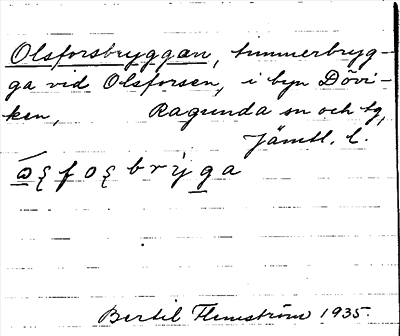 Olsforsbryggan, timmerbryg-
ga vid Olsforsen, i byn Dövi-
ken, Ragunda sn och tg,
Jämtl. l.
Bertil Flemström 1935.